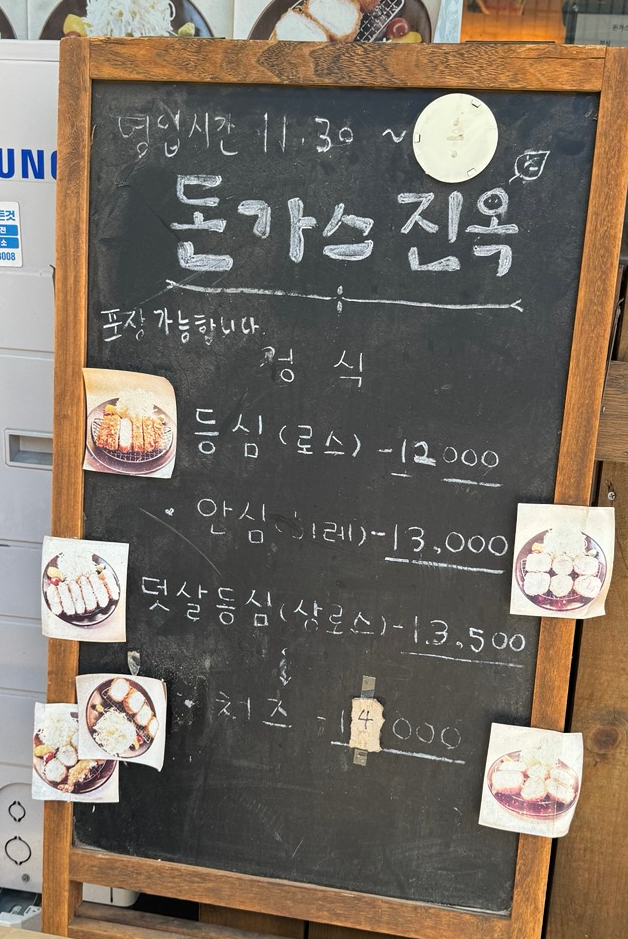 영업시간 11.30 ~
돈가스 진옥
포장 가능합니다.
정 식
등심(로스) - 12000
· 안심(히레) - 13,000
덧살등심(상로스) - 13,500
치즈 - 14000
UNG
8008